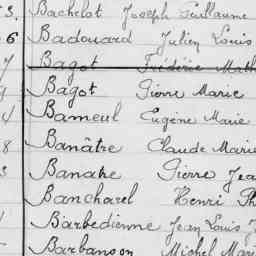 3. Bachelot Joseph Guillaume
6 Badouard Julien Louis
7 Bagot Frédéric Math
Bagot Pierre Marie
Bameul Eugène Marie
8 Banâtre Claude Marie
3 Banatre Pierre Jea
Bancharel Henri Ph
Barbedienne Jean Louis J
Barbanson Michel Mari